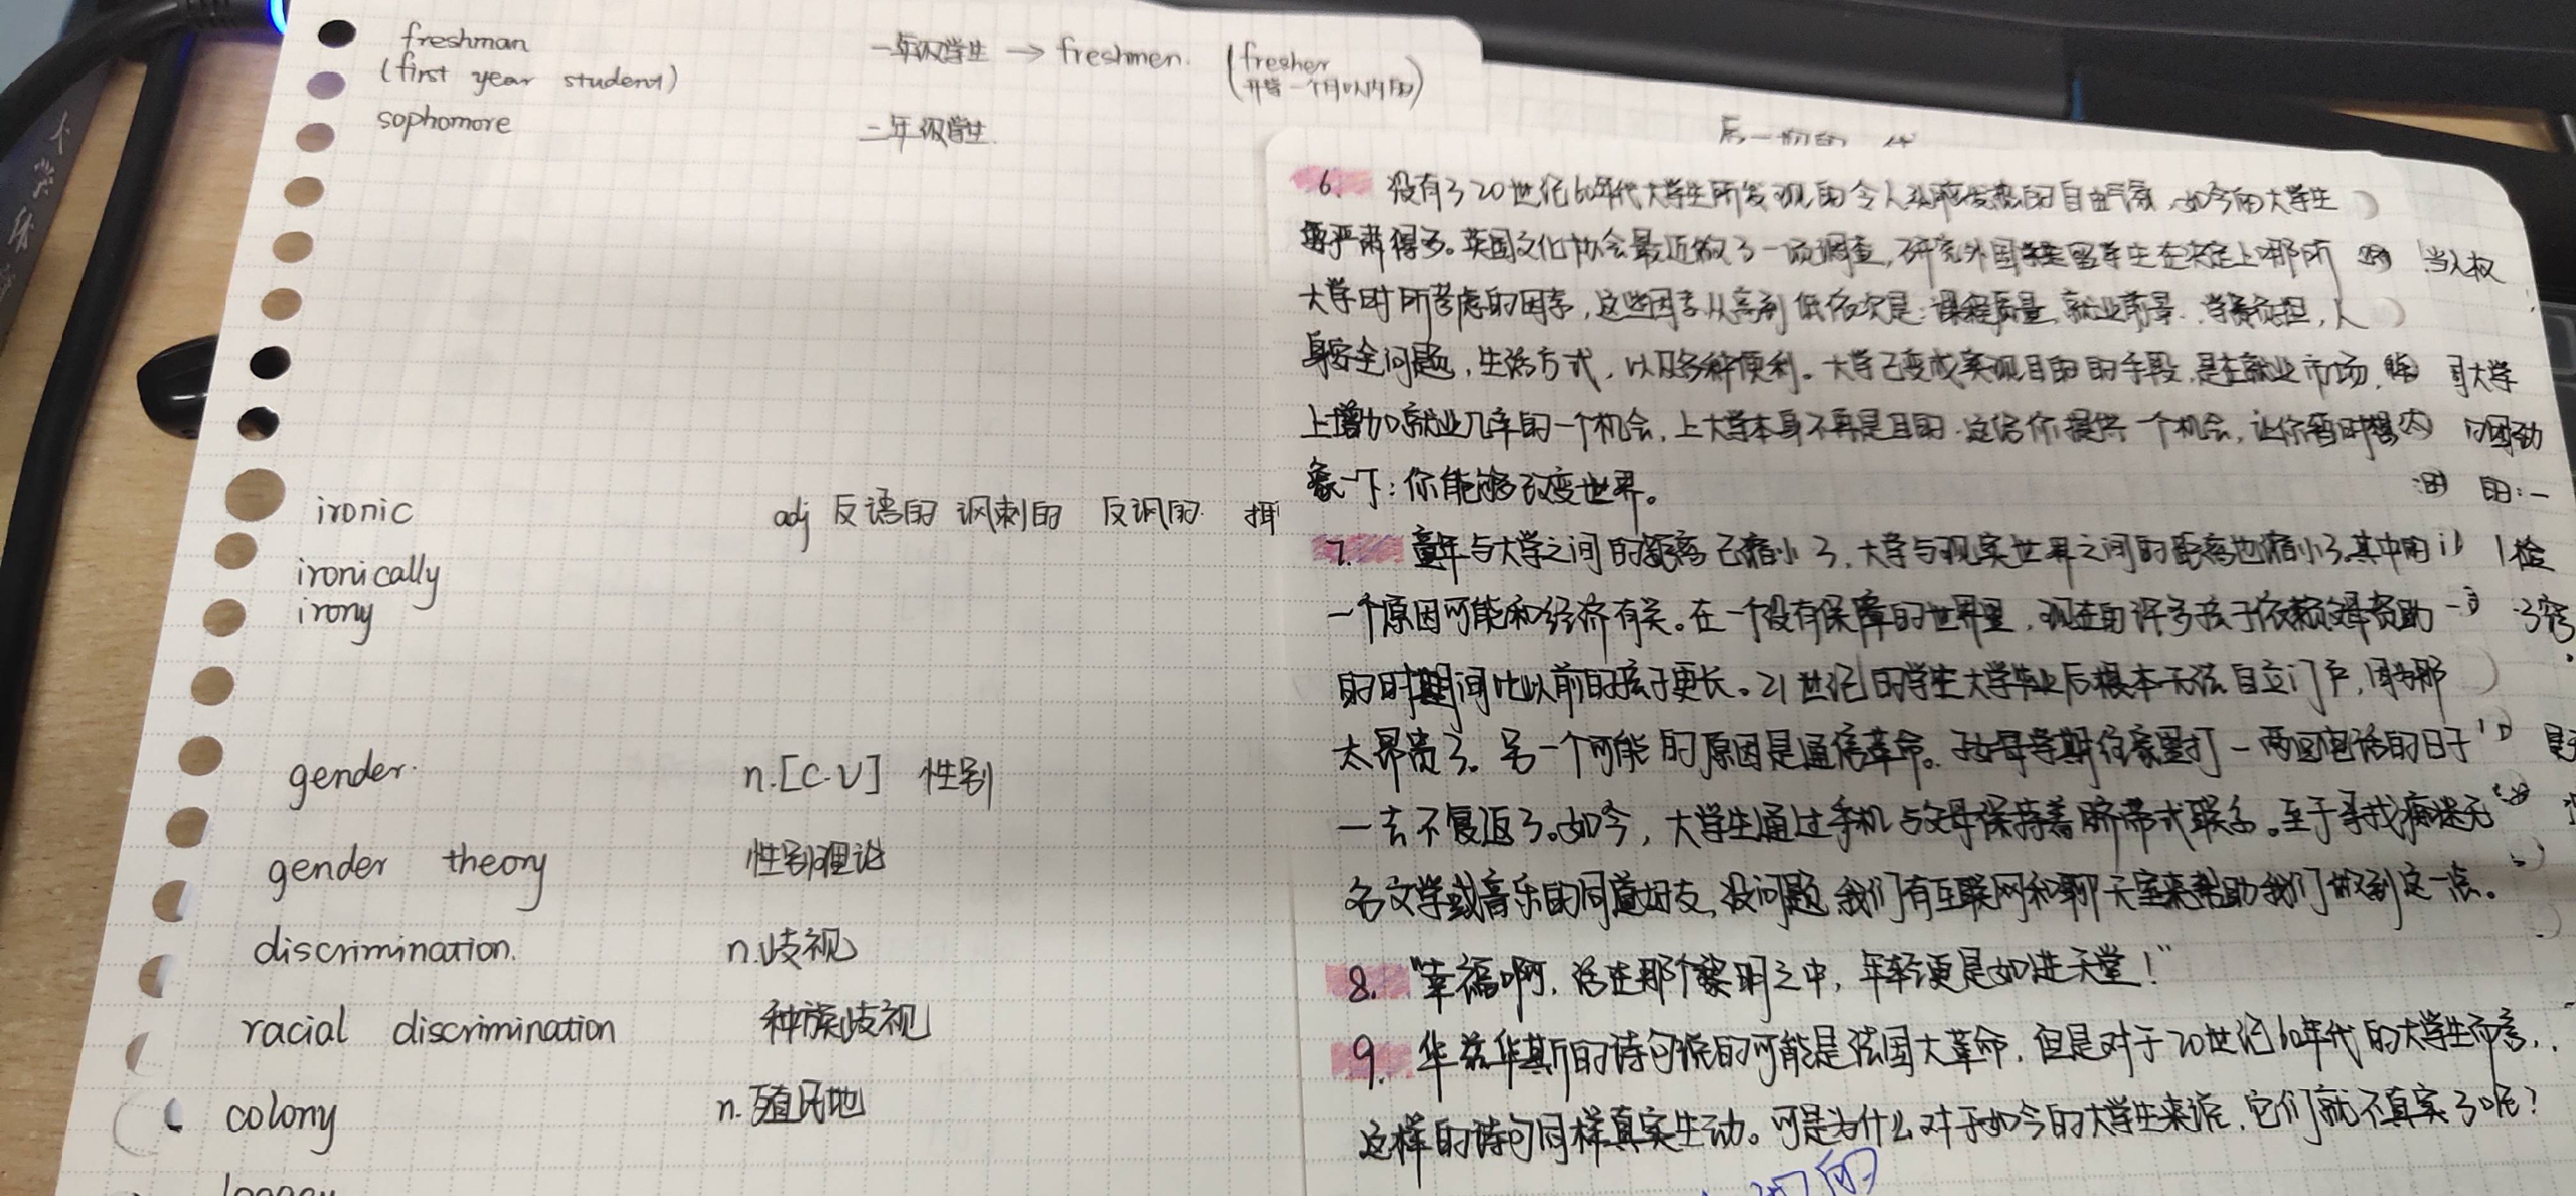 freshman 一年级学生 → freshmen. (fresher
(first year student) 开学一个月以内的)
sophomore 二年级学生.
ironic adj 反语的 讽刺的 反讽的
ironically
irony
gender. n.[C.U] 性别
gender theory 性别理论
discrimination. n.歧视
racial discrimination 种族歧视
colony n. 殖民地
6. 没有了20世纪60年代大学生所发现的令人头脑发热的自由气氛,如今的大学生
要严肃得多。英国文化协会最近做了一项调查,研究外国留学生在决定上哪所
大学时所考虑的因素,这些因素从高到低依次是:课程质量,就业前景,学费负担,人
身安全问题,生活方式,以及各种便利。大学已变成实现目的的手段,是在就业市场
上增加就业几率的一个机会,上大学本身不再是目的.这给你提供一个机会,让你暂时想
象一下:你能够改变世界。
7. 童年与大学之间的距离已缩小了,大学与现实世界之间的距离也缩小了.其中的
一个原因可能和经济有关。在一个没有保障的世界里,现在的许多孩子依赖父母资助
的时期间比以前的孩子更长。21世纪的学生大学毕业后根本无法自立门户,因为那
太昂贵了。另一个可能的原因是通信革命。每学期往家里打一两回电话的日子
一去不复返了。如今,大学生通过手机与父母保持着脐带式联系。至于寻找痴迷无
名文学或音乐的同道好友,没问题,我们有互联网和聊天室来帮助我们做到这一点。
8. “幸福啊,活在那个黎明之中,年轻更是如进天堂!”
9. 华兹华斯的诗句说的可能是法国大革命,但是对于20世纪60年代的大学生而言,
这样的诗句同样真实生动。可是为什么对于如今的大学生来说,它们就不真实了呢?
当人权